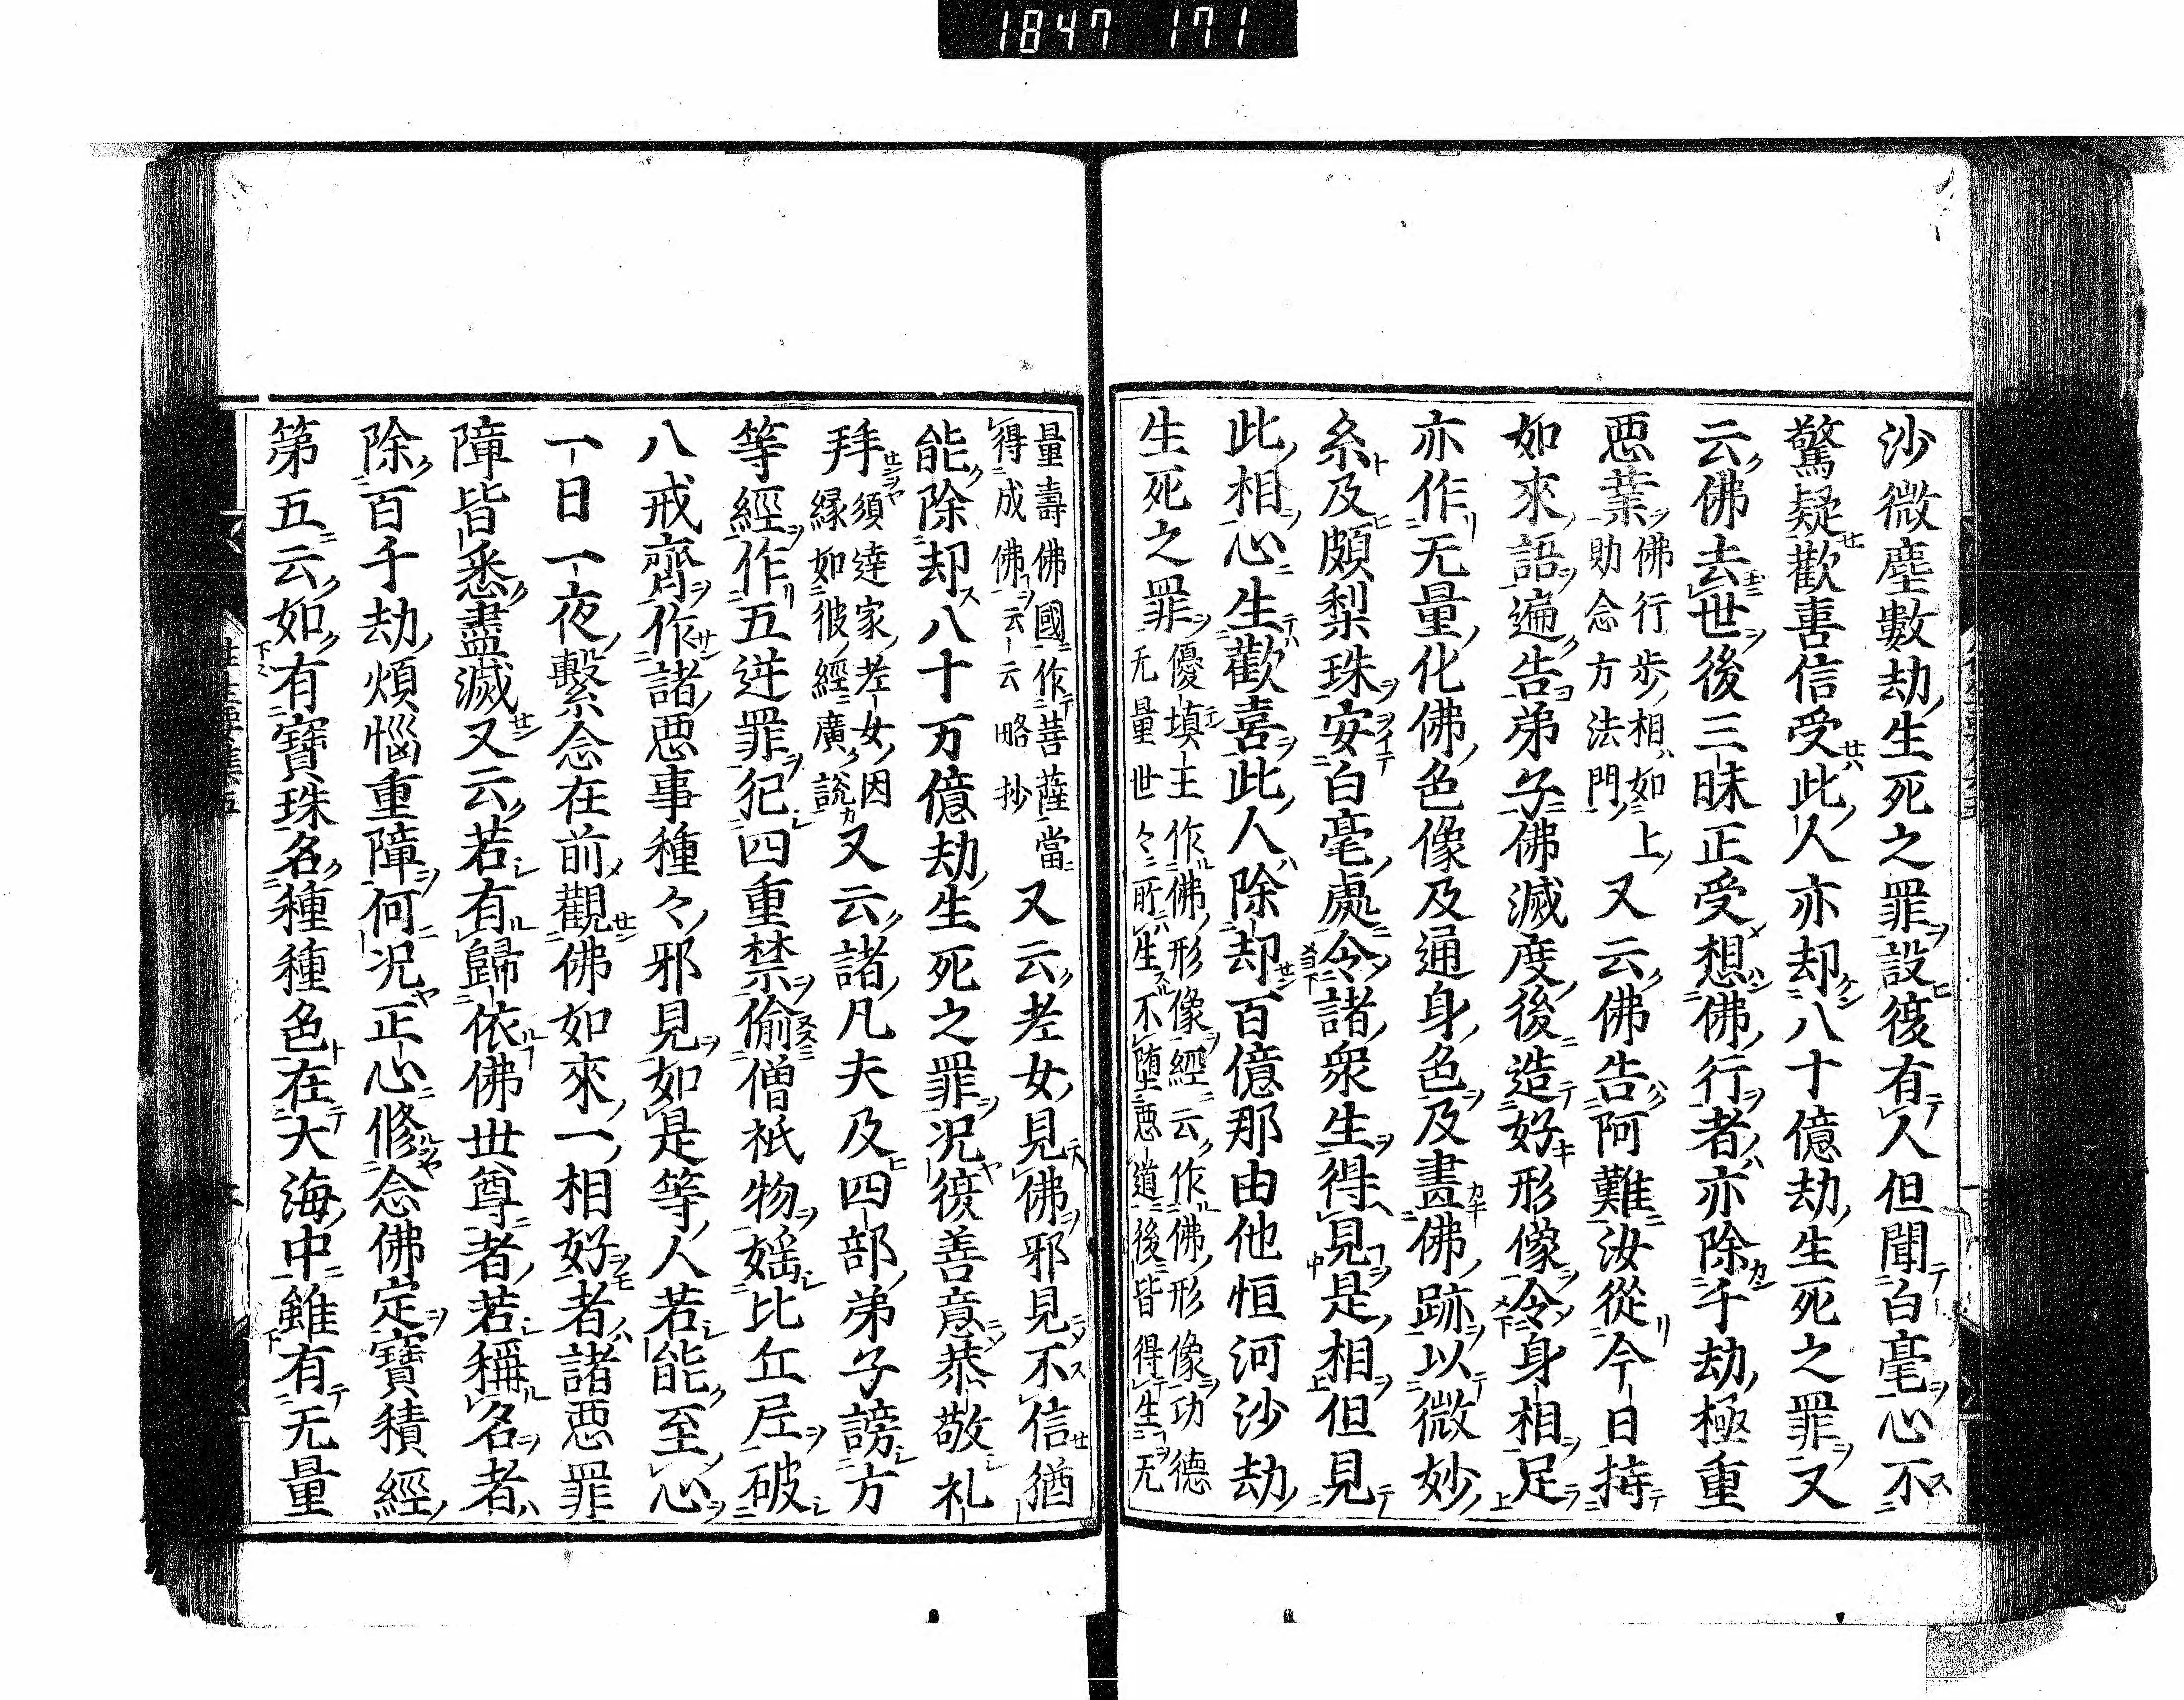 1847 171
沙微塵數劫生死之罪設復有人但聞白毫心不
驚疑歡喜信受此人亦却八十億劫生死之罪又
云佛去世後三昧正受想佛行者亦除千劫極重
惡業
佛行步相如上
助念方法門
又云佛告阿難汝從今日持
如來語遍告弟子佛滅度後造好形像令身相足
亦作无量化佛色像及通身色及畫佛跡以微妙
糸及頗梨珠安白毫處令諸衆生得見是相但見
此相心生歡喜此人除却百億那由他恒河沙劫
生死之罪
優塡王作佛形像經云作佛形像功德
无量世々所生不墮惡道後皆得生无
量壽佛國作菩薩當
得成佛云云略抄
又云老女見佛邪見不信猶
能除却八十万億劫生死之罪况復善意恭敬礼
拜
須達家老女因
縁如彼經廣說
又云諸凡夫及四部弟子謗方
等經作五逆罪犯四重禁偷僧祇物婬比丘尼破
八戒齊作諸惡事種々邪見如是等人若能至心
一日一夜繫念在前觀佛如來一相好者諸惡罪
障皆悉盡滅又云若有歸依佛世尊者若稱名者
除百千劫煩惱重障何况正心修念佛定寶積經
第五云如有寶珠名種種色在大海中雖有无量